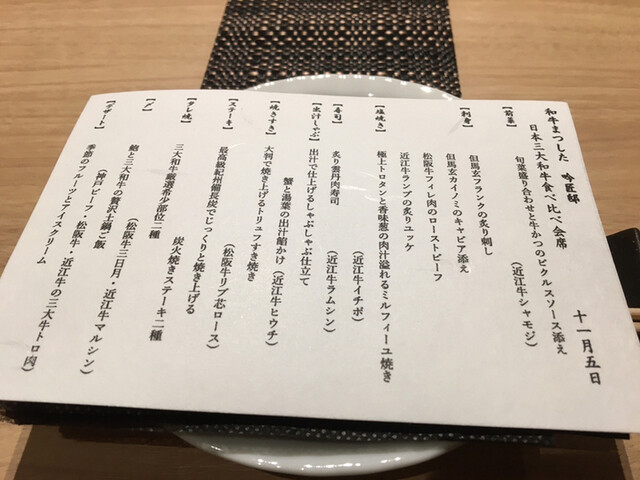 和牛まつした 吟匠邸
日本三大和牛食べ比べ会席
十一月五日
【前菜】
旬菜盛り合わせと牛かつのピクルスソース添え
（近江牛シャモジ）
【刺身】
但馬玄フランクの炙り刺し
但馬玄カイノミのキャビア添え
松阪牛フィレ肉のローストビーフ
近江牛ランプの炙りユッケ
【塩焼き】
極上トロタンと香味葱の肉汁溢れるミルフィーユ焼き
【寿司】
炙り雲丹肉寿司
（近江牛イチボ）
【出汁しゃぶ】
出汁で仕上げるしゃぶしゃぶ仕立て
（近江牛ラムシン）
蟹と湯葉の出汁餡かけ
（近江牛ヒウチ）
【焼きすき】
大判で焼き上げるトリュフすき焼き
（松阪牛リブ芯ロース）
【ステーキ】
最高級紀州備長炭でじっくりと焼き上げる
炭火焼きステーキ二種
【タレ焼】
三大和牛厳選希少部位二種
（松阪牛三日月・近江牛マルシン）
【〆】
鮑と三大和牛の贅沢土鍋ご飯
（神戸ビーフ・松阪牛・近江牛の三大牛トロ肉）
【デザート】
季節のフルーツとアイスクリーム